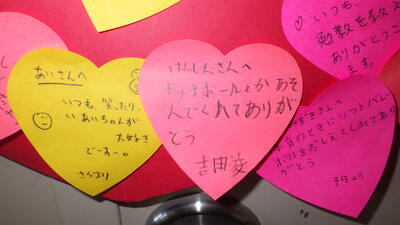 あいさんへ
いつも、笑ったり、
いあいちゃんが
大好き
でーすー。
さらより
けんしんさんへ
ドッチボールとかあそ
んでくれてありが
とう
吉田凌
♡いつも、
勉教を教え
ありがとうご
ます。
さんへ
のときにソフトバレー
ボールをおしえてくれてあり
がとう
より